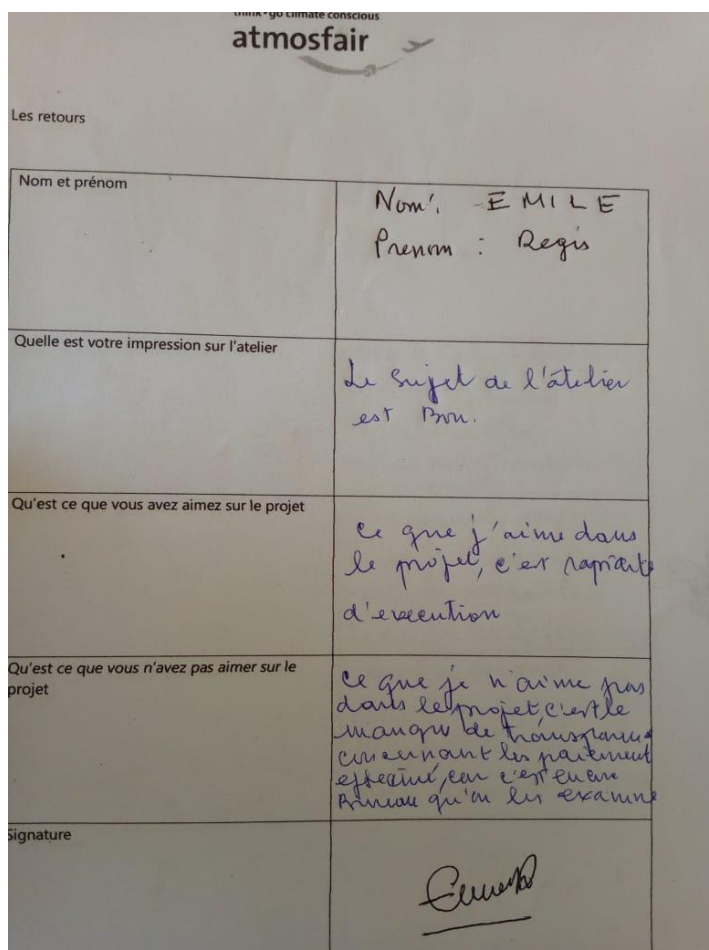 think • go climate conscious
atmosfair
Les retours
Nom et prénom
Nom : EMILE
Prenom : Regis
Quelle est votre impression sur l'atelier
Le sujet de l'âtelier
est Bon.
Qu'est ce que vous avez aimez sur le projet
Ce que j'aime dans
le projet, c'est
d'execution
Qu'est ce que vous n'avez pas aimer sur le
projet
Ce que je n'aime pas
dans le projet, c'est le
manque de transparence
concernant les paiement
effectué, car c'est
qu'on les examine
Signature